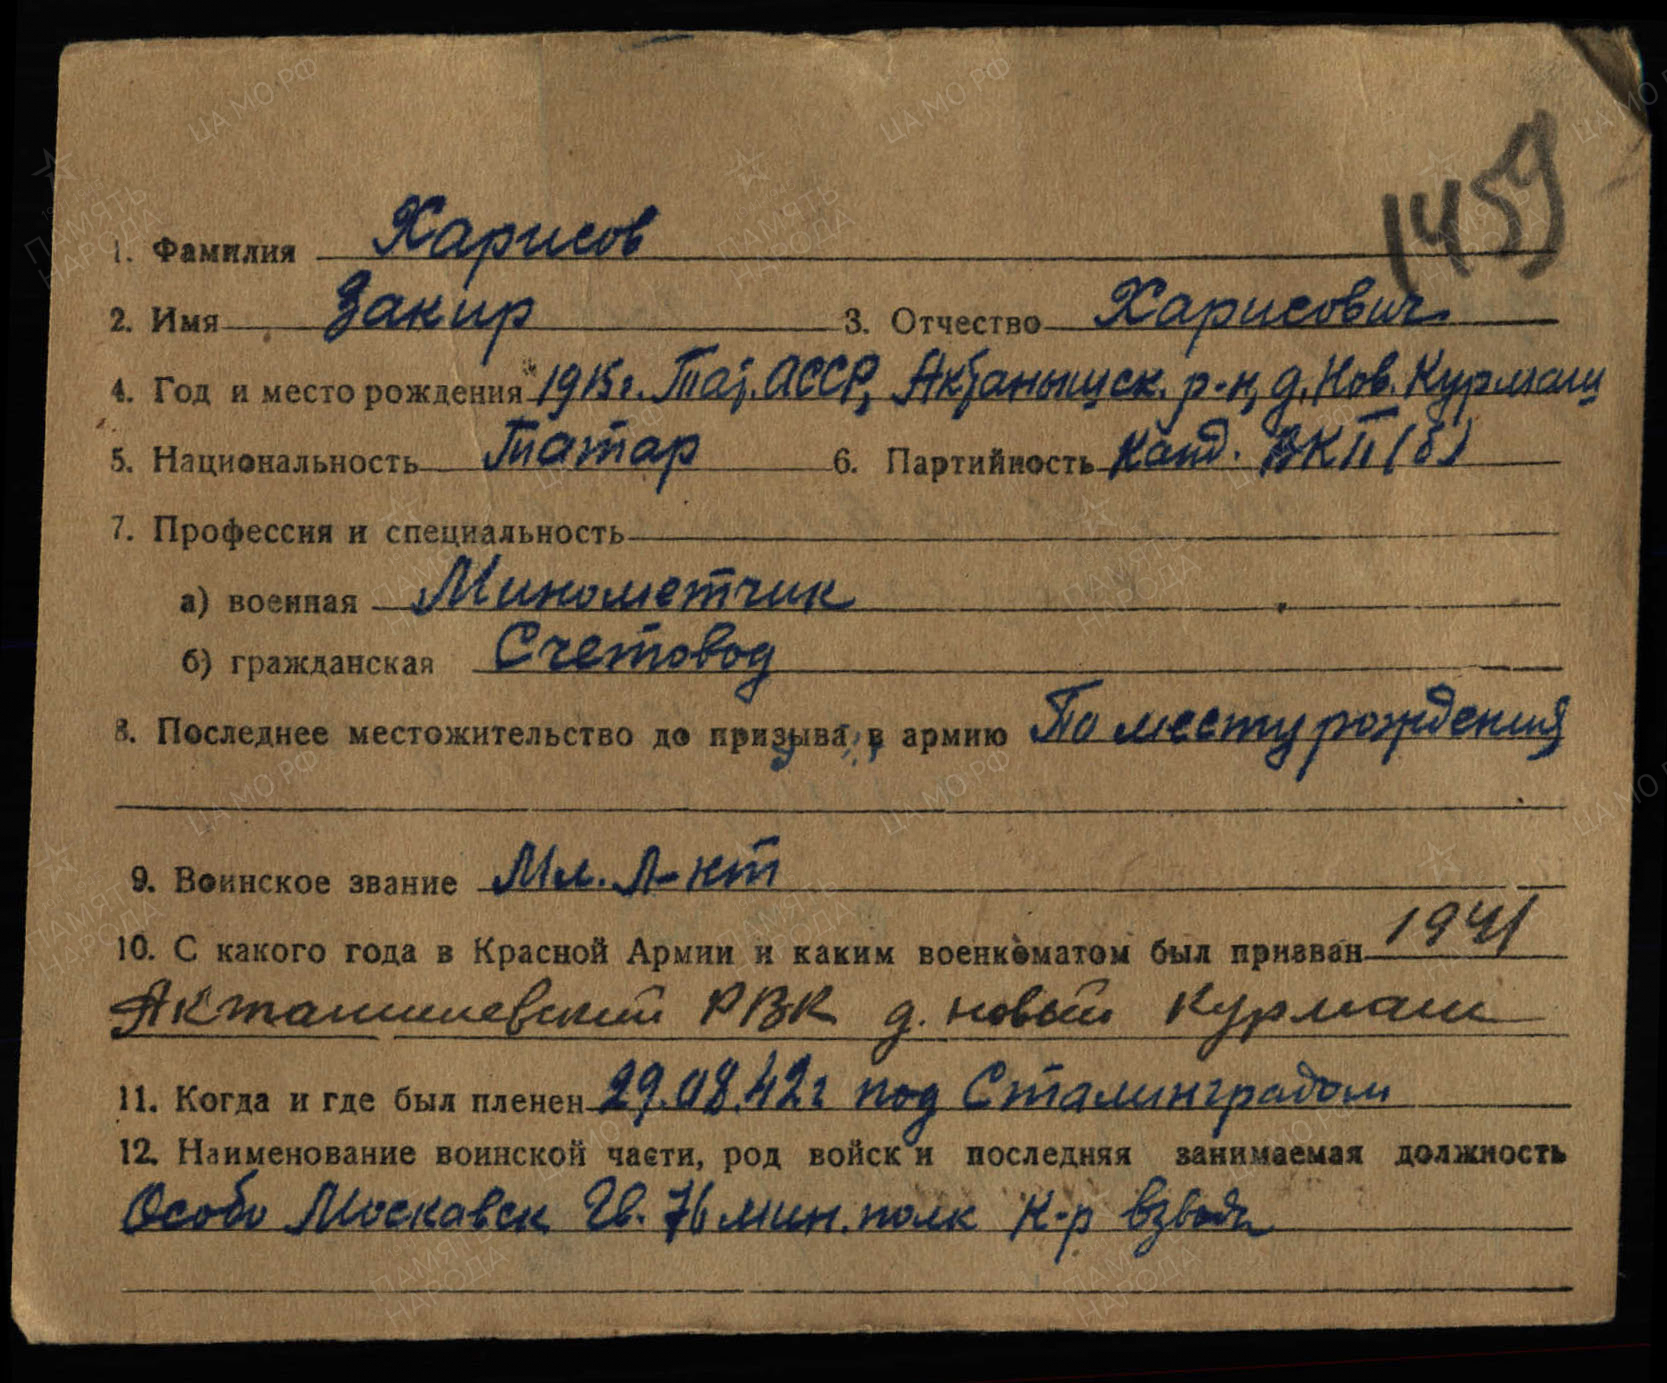 1459
1. Фамилия Харисов
2. Имя Закир 3. Отчество Харисович
4. Год и место рождения 1915г. Тат. АССР, Актанышск. р-н, д. Нов. Курмаш
5. Национальность Татар 6. Партийность Канд. ВКП(б)
7. Профессия и специальность
а) военная Минометчик
б) гражданская Счетовод
8. Последнее местожительство до призыва в армию По месту рождения
9. Воинское звание Мл. Л-кт
10. С какого года в Красной Армии и каким военкоматом был призван 1941
РВК д. новый Курмаш
11. Когда и где был пленен 29.08.42г под Сталинградом
12. Наименование воинской части, род войск и последняя занимаемая должность
Особо Москавск Гв. 76 мин. полк К-р взвода
ПАМЯТЬ НАРОДА
ЦА МО РФ